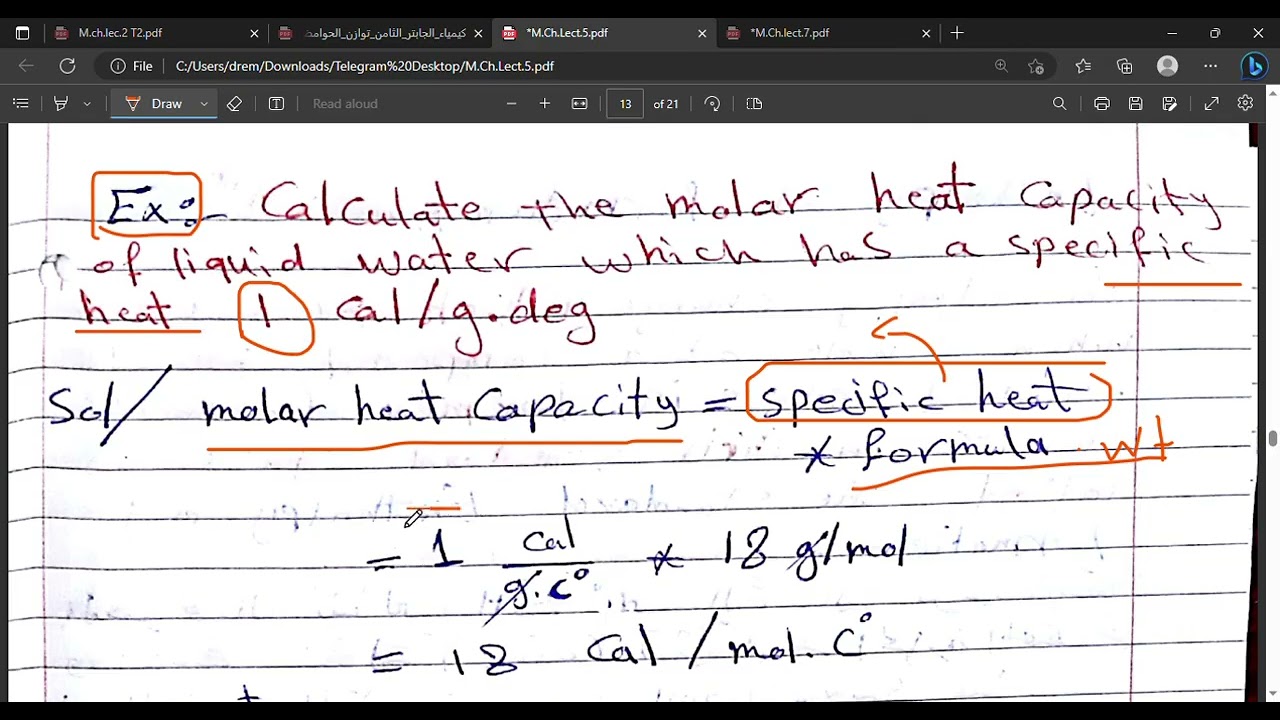 M.ch.lec.2 T2.pdf
كيمياء_الجابتر_الثامن_توازن_الحوامض
*M.Ch.Lect.5.pdf
*M.Ch.lect.7.pdf
File
C:/Users/drem/Downloads/Telegram%20Desktop/M.Ch.Lect.5.pdf
Draw
Read aloud
13 of 21
Ex:- Calculate the molar heat capacity
of liquid water which has a specific
heat 1 Cal/g.deg
Sol/ molar heat Capacity = specific heat
* formula wt
= 1 cal/g.c° * 18 g/mol
= 18 Cal/mol.c°